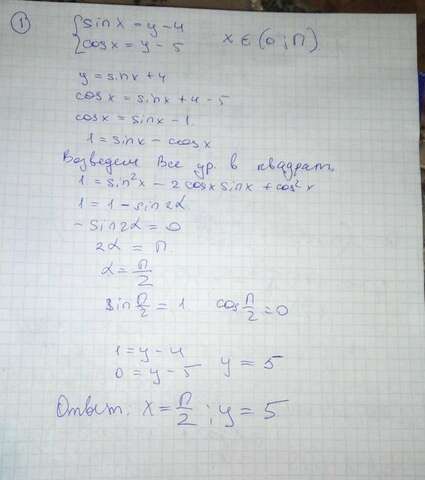 1 { sinx = y - 4
{ cosx = y - 5   x ∈ (0; П)
y = sinx + 4
cosx = sinx + 4 - 5
cosx = sinx - 1.
1 = sinx - cosx
Возведем все ур. в квадрать
1 = sin²x - 2cosx sinx + cos²x
1 = 1 - sin2α
- sin2α = 0
2α = П
α = П/2
sin П/2 = 1   cos П/2 = 0
1 = y - 4
0 = y - 5   y = 5
Ответ: x = П/2 ; y = 5